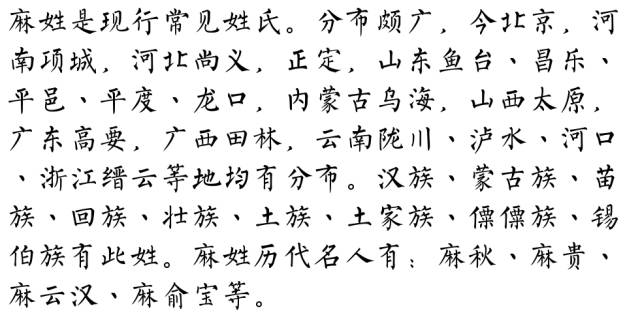 麻姓是现行常见姓氏。分布颇广，今北京，河
南项城，河北尚义，正定，山东鱼台、昌乐、
平邑、平度、龙口，内蒙古乌海，山西太原，
广东高要，广西田林，云南陇川、泸水、河口
、浙江缙云等地均有分布。汉族、蒙古族、苗
族、回族、壮族、土族、土家族、僳僳族、锡
伯族有此姓。麻姓历代名人有：麻秋、麻贵、
麻云汉、麻俞宝等。